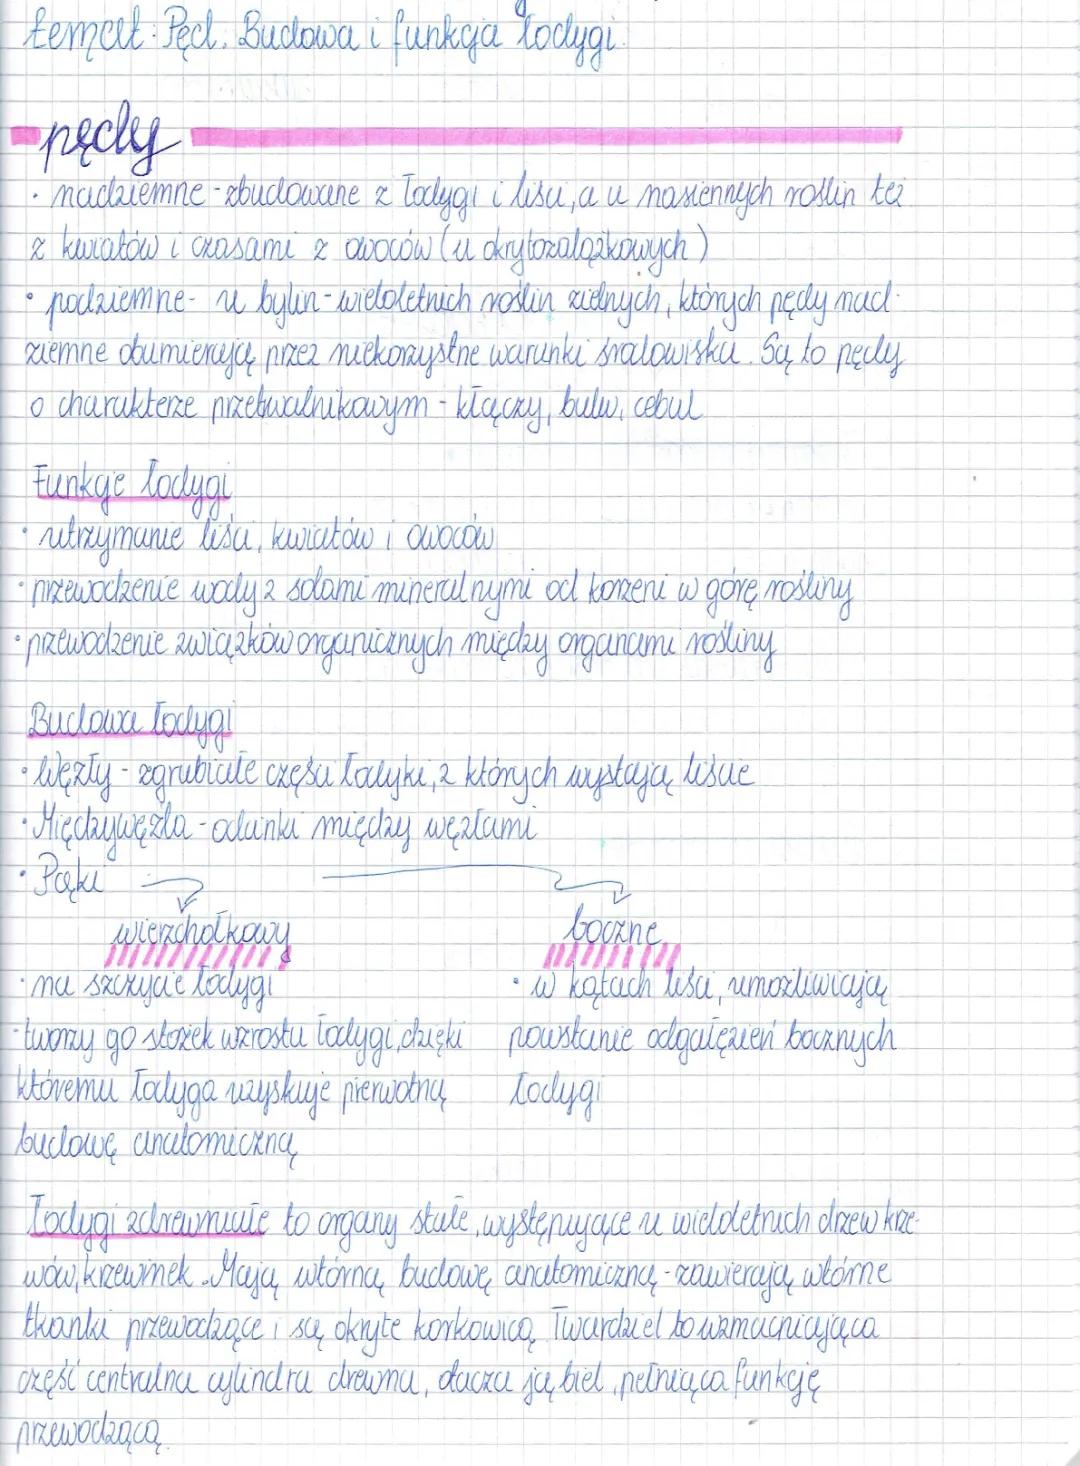 temat: Pęd. Budowa i funkcja łodygi.
pędy
• nadziemne - zbudowane z łodygi i liści, a u nasiennych roślin też
z kwiatów i czasami z owoców (u okrytozalążkowych)
• podziemne - u bylin - wieloletnich roślin zielnych, których pędy nad-
ziemne obumierają przez niekorzystne warunki środowiska. Są to pędy
o charakterze przetwalnikowym - kłączy, bulw, cebul
Funkcje łodygi
• utrzymanie liści, kwiatów i owoców
• przewodzenie wody z solami mineralnymi od korzeni w górę rośliny
• przewodzenie związków organicznych między organami rośliny
Budowa łodygi
• Węzły - zgrubiałe części łodyki, z których wystają liście
• Międzywęźla - odcinki między węzłami
• Pąki
wierzchołkowy
• na szczycie łodygi
• tworzy go stożek wzrostu łodygi, dzięki
któremu łodyga uzyskuje pierwotną
budowę anatomiczną
boczne
• w kątach liści, umożliwiają
powstanie odgałęzień bocznych
łodygi
Łodygi zdrewniałe to organy stałe, występujące u wieloletnich drzew krze-
wów, krzewinek. Mają wtórną budowę anatomiczną - zawierają wtórne
tkanki przewodzące i są okryte korkowicą. Twardziel to wzmacniająca
część centralna cylindra drewna, otacza ją biel, pełniąca funkcję
przewodzącą.